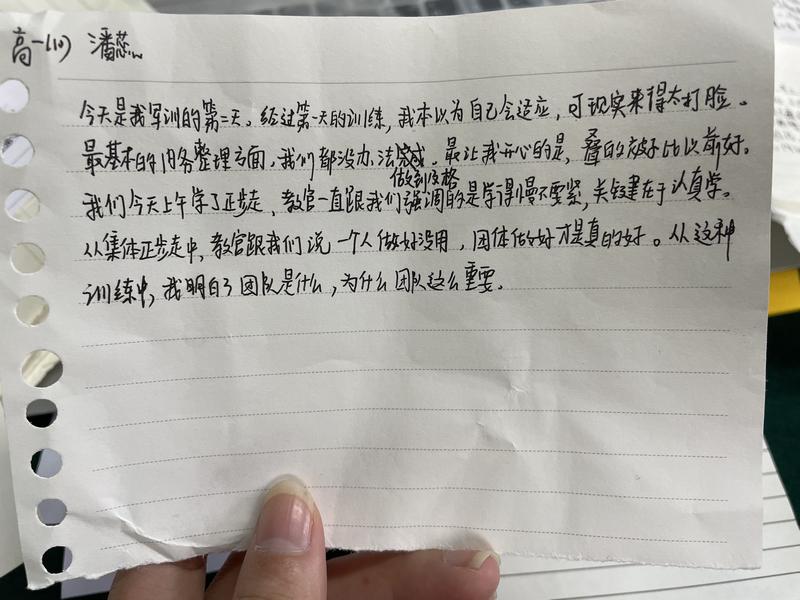 高一(10) 潘蕊
今天是我军训的第二天。经过第一天的训练,我本以为自己会适应,可现实来得太打脸。
最基本的内务整理方面,我们都没办法做到及格。最让我开心的是,叠的被子比以前好。
我们今天上午学了正步走,教官一直跟我们强调的是学得慢不要紧,关键在于认真学。
从集体正步走中,教官跟我们说一个人做好没用,团体做好才是真的好。从这种
训练中,我明白了团队是什么,为什么团队这么重要。